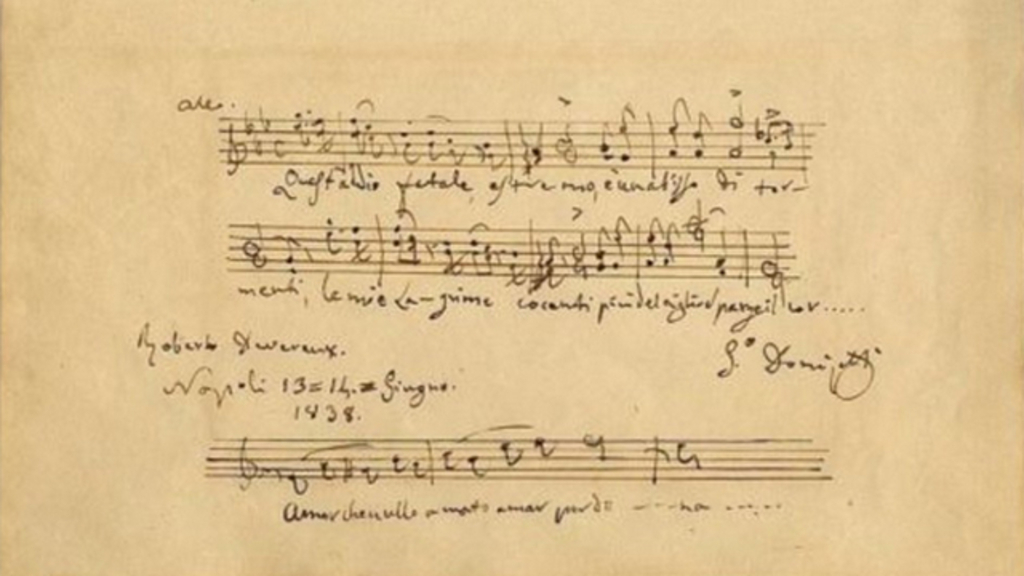 Quest'addio fatale, estremo, è un abisso di tor-
menti, le mie la-grime cocenti più del ciglio sparge il cor.....
Roberto Devereux.
G° Donizetti
Napoli 13=14.= Giugno.
1838.
Amor che nullo amato amar perdo ---- na -----